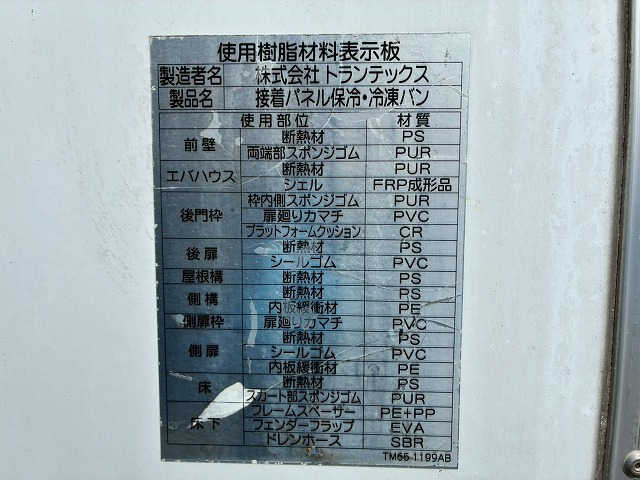 使用樹脂材料表示板
製造者名 株式会社トランテックス
製品名 接着パネル保冷・冷凍バン
使用部位 材質
前壁 断熱材 PS
両端部スポンジゴム PUR
エバハウス 断熱材 PUR
シェル FRP成形品
後門枠 枠内側スポンジゴム PUR
扉廻りカマチ PVC
プラットフォームクッション CR
後扉 断熱材 PS
シールゴム PVC
屋根構 断熱材 PS
側構 断熱材 PS
内板緩衝材 PE
側扉枠 扉廻りカマチ PVC
側扉 断熱材 PS
シールゴム PVC
内板緩衝材 PE
床 断熱材 PS
スカート部スポンジゴム PUR
床下 フレームスペーサー PE+PP
フェンダーフラップ EVA
ドレンホース SBR
TM66-1199AB